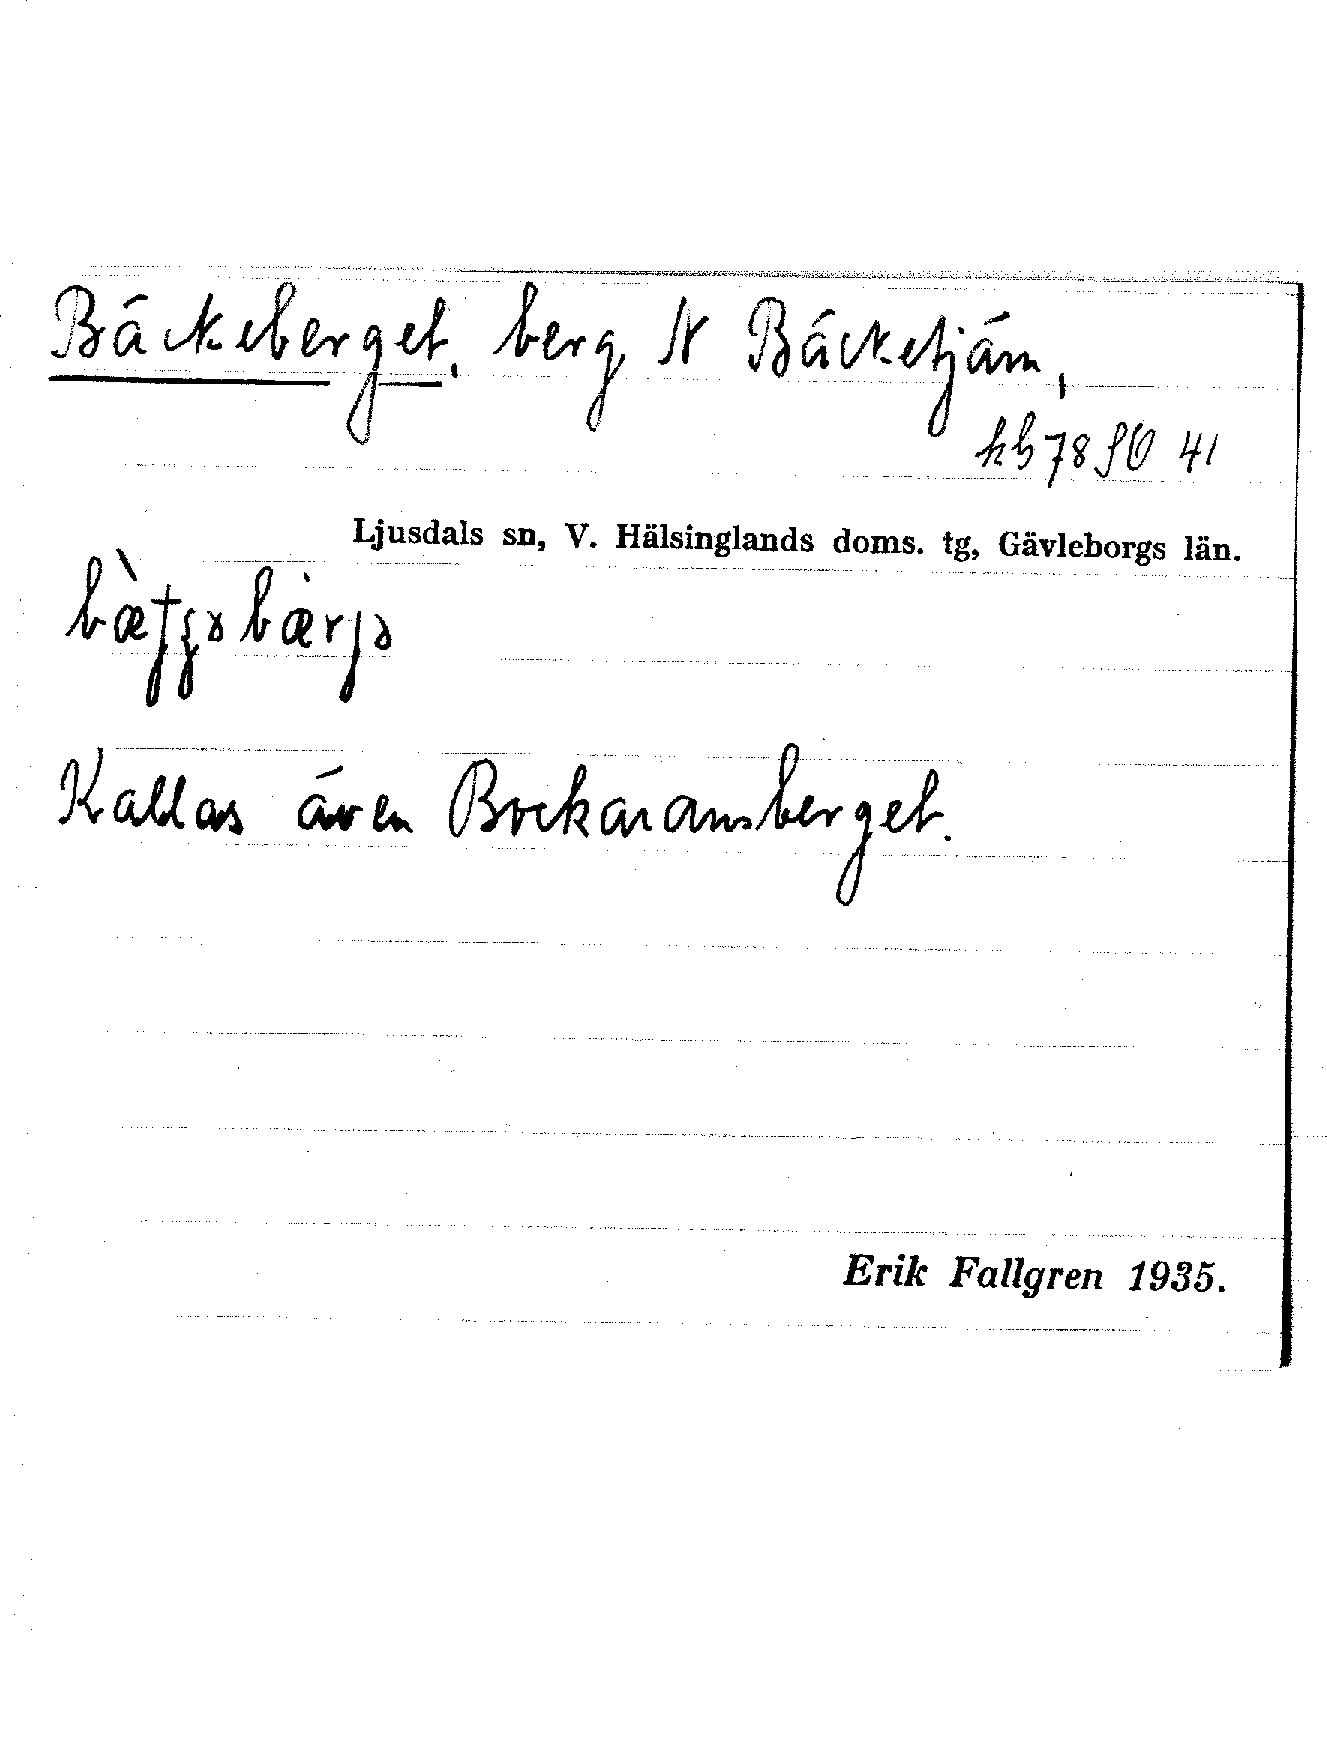 Bäckeberget, berg N Bäcketjärn,
kb 78 SO 41
Ljusdals sn, V. Hälsinglands doms. tg, Gävleborgs län.
Kallas även Bockaransberget.
Erik Fallgren 1935.